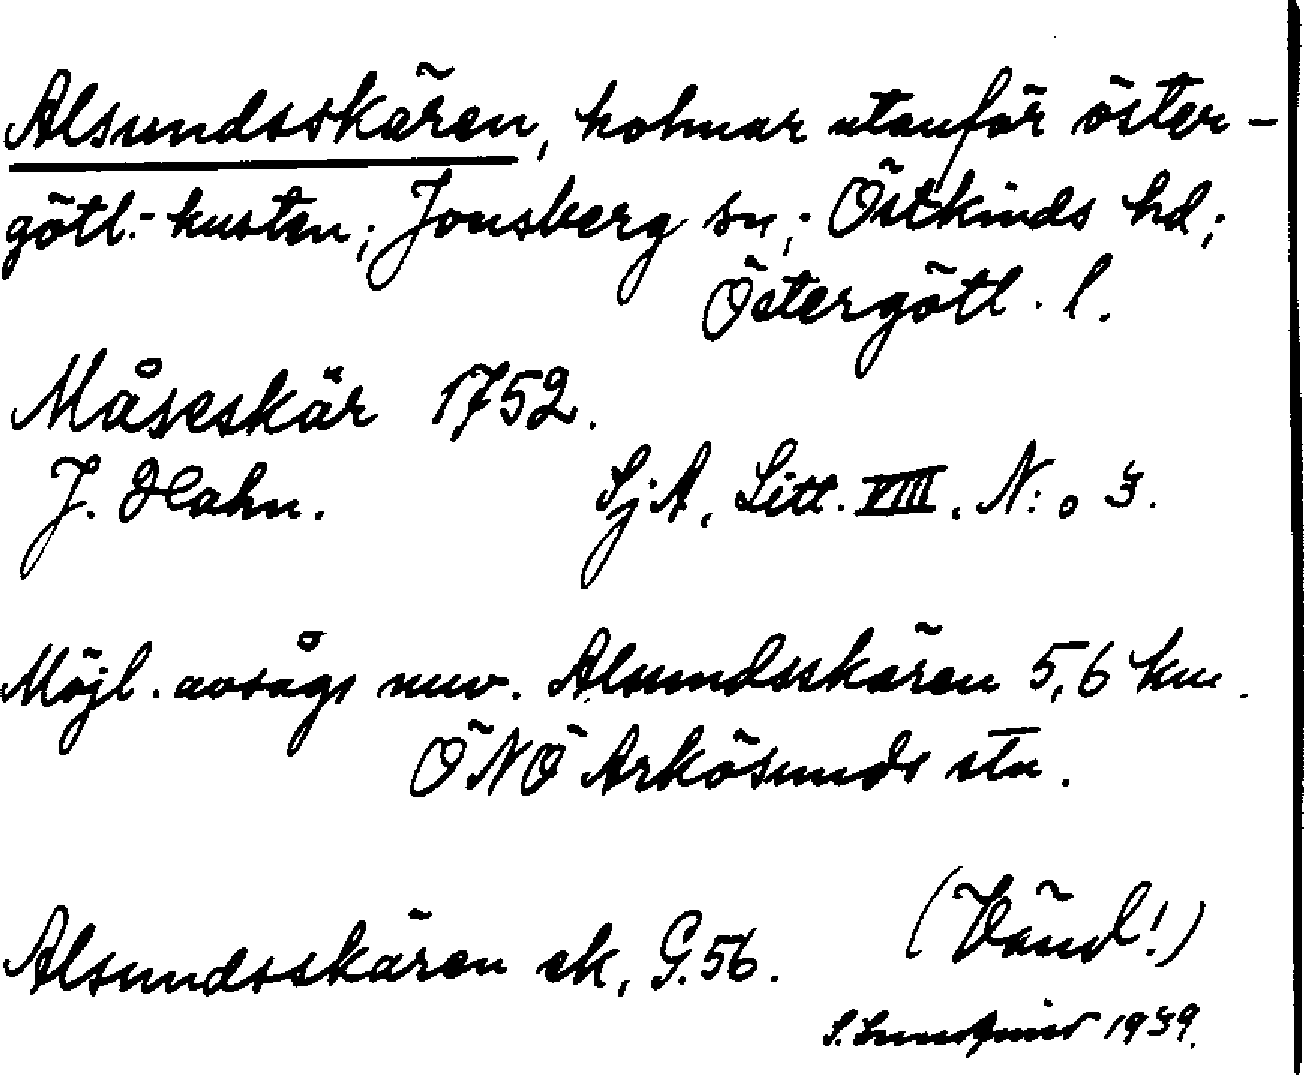 Alsundsskären, holmar utanför öster-
götl.-kusten; Jonsberg sn; Östkinds hd;
Östergötl. l.
Måseskär 1752.
J. Hahn. SjA, Litt. VIII. N:o 3.
Möjl. avsågs nuv. Alsundsskären 5,6 km.
ÖNÖ Arkösunds stn.
(Vänd!)
Alsundsskären ek, G. 56.
S. Lundqvist 1939.